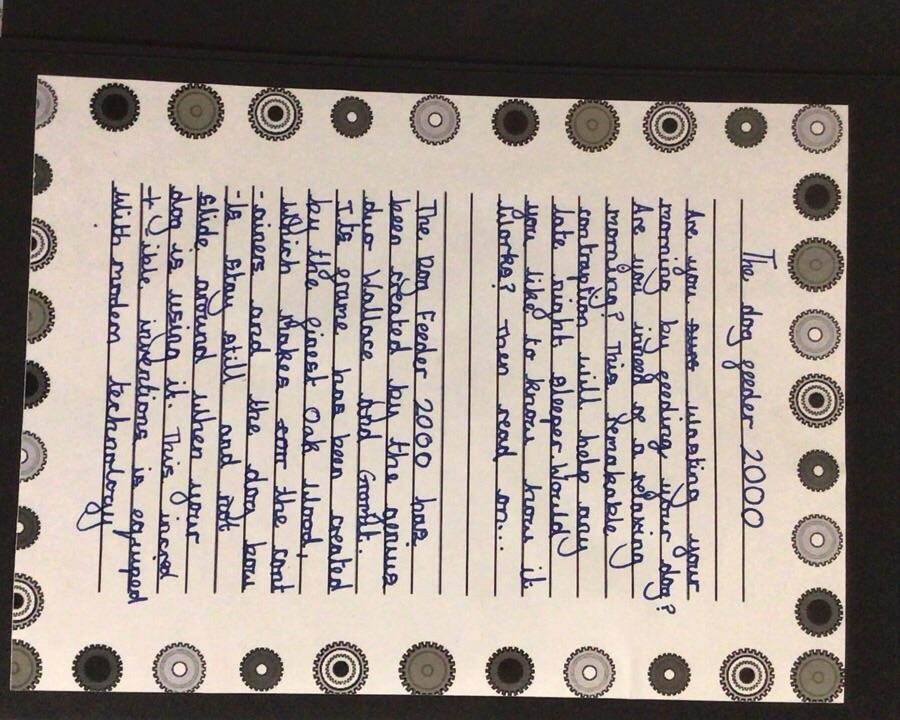 The dog feeder 2000
Are you sure wasting your
morning by feeding your dog?
Are you in need of a relaxing
morning? This remarkable
contraption will help any
late night sleeper. Would
you like to know how it
Works? Then read on...
The Dog Feeder 2000 has
been created by the genius
duo Wallace And Gromit.
Its frame has been created
by the finest Oak Wood,
Which Makes the cont
-ainers and the dog bow
-ls stay still and not
slide around when your
dog is using it. This incred
+ible inventions is equiped
With modern technology